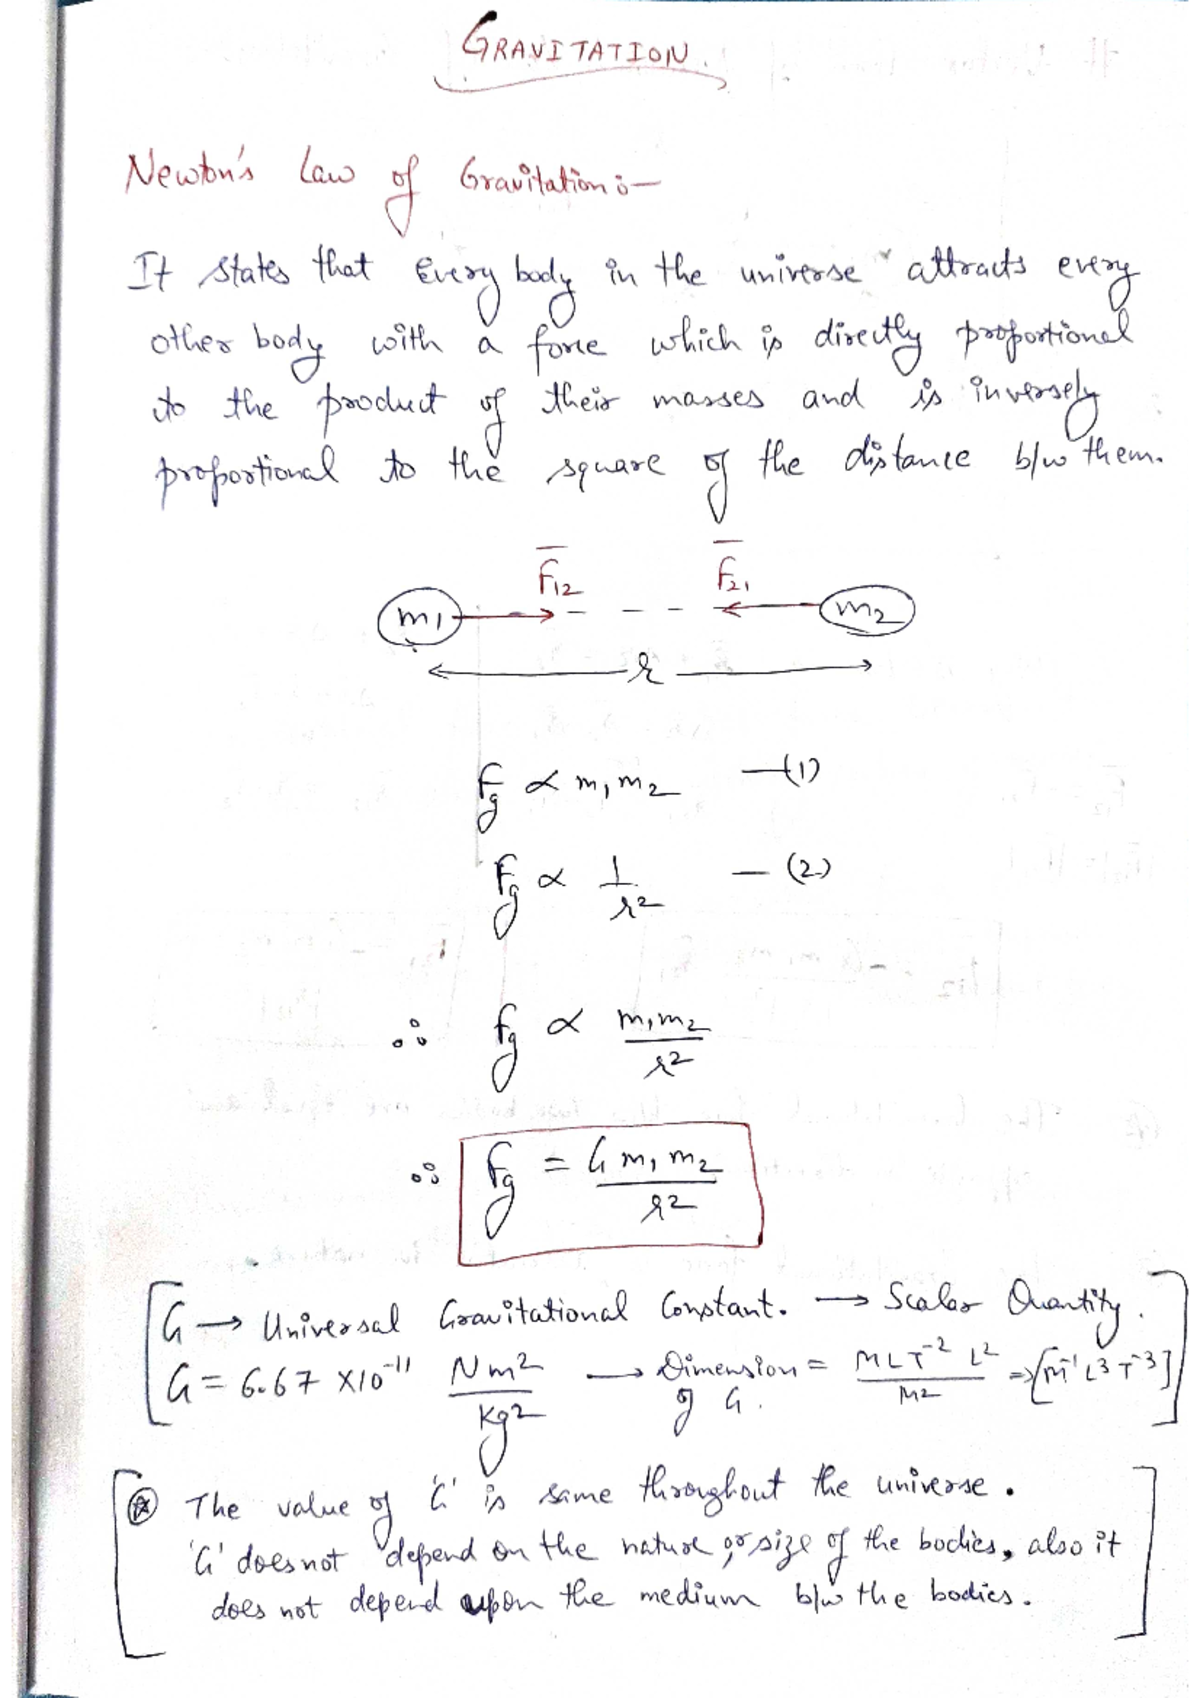 GRAVITATION.
Newton's Law of Gravitation :-
It states that Every body in the universe attracts every
other body with a force which is directly proportional
to the product of their masses and is inversely
proportional to the square of the distance b/w them.
F̄12 F̄21
m1 m2
r
Fg ∝ m1 m2 —(1)
Fg ∝ 1/r² — (2)
∴ Fg ∝ m1m2/r²
∴ Fg = G m1 m2/r²
G → Universal Gravitational Constant. → Scalar Quantity.
G = 6.67 X10⁻¹¹ Nm²/Kg² → Dimension of G. = MLT⁻² L²/M² ⇒ [M⁻¹ L³ T⁻³]
The value of 'G' is same throughout the universe.
'G' does not depend on the nature or size of the bodies, also it
does not depend upon the medium b/w the bodies.